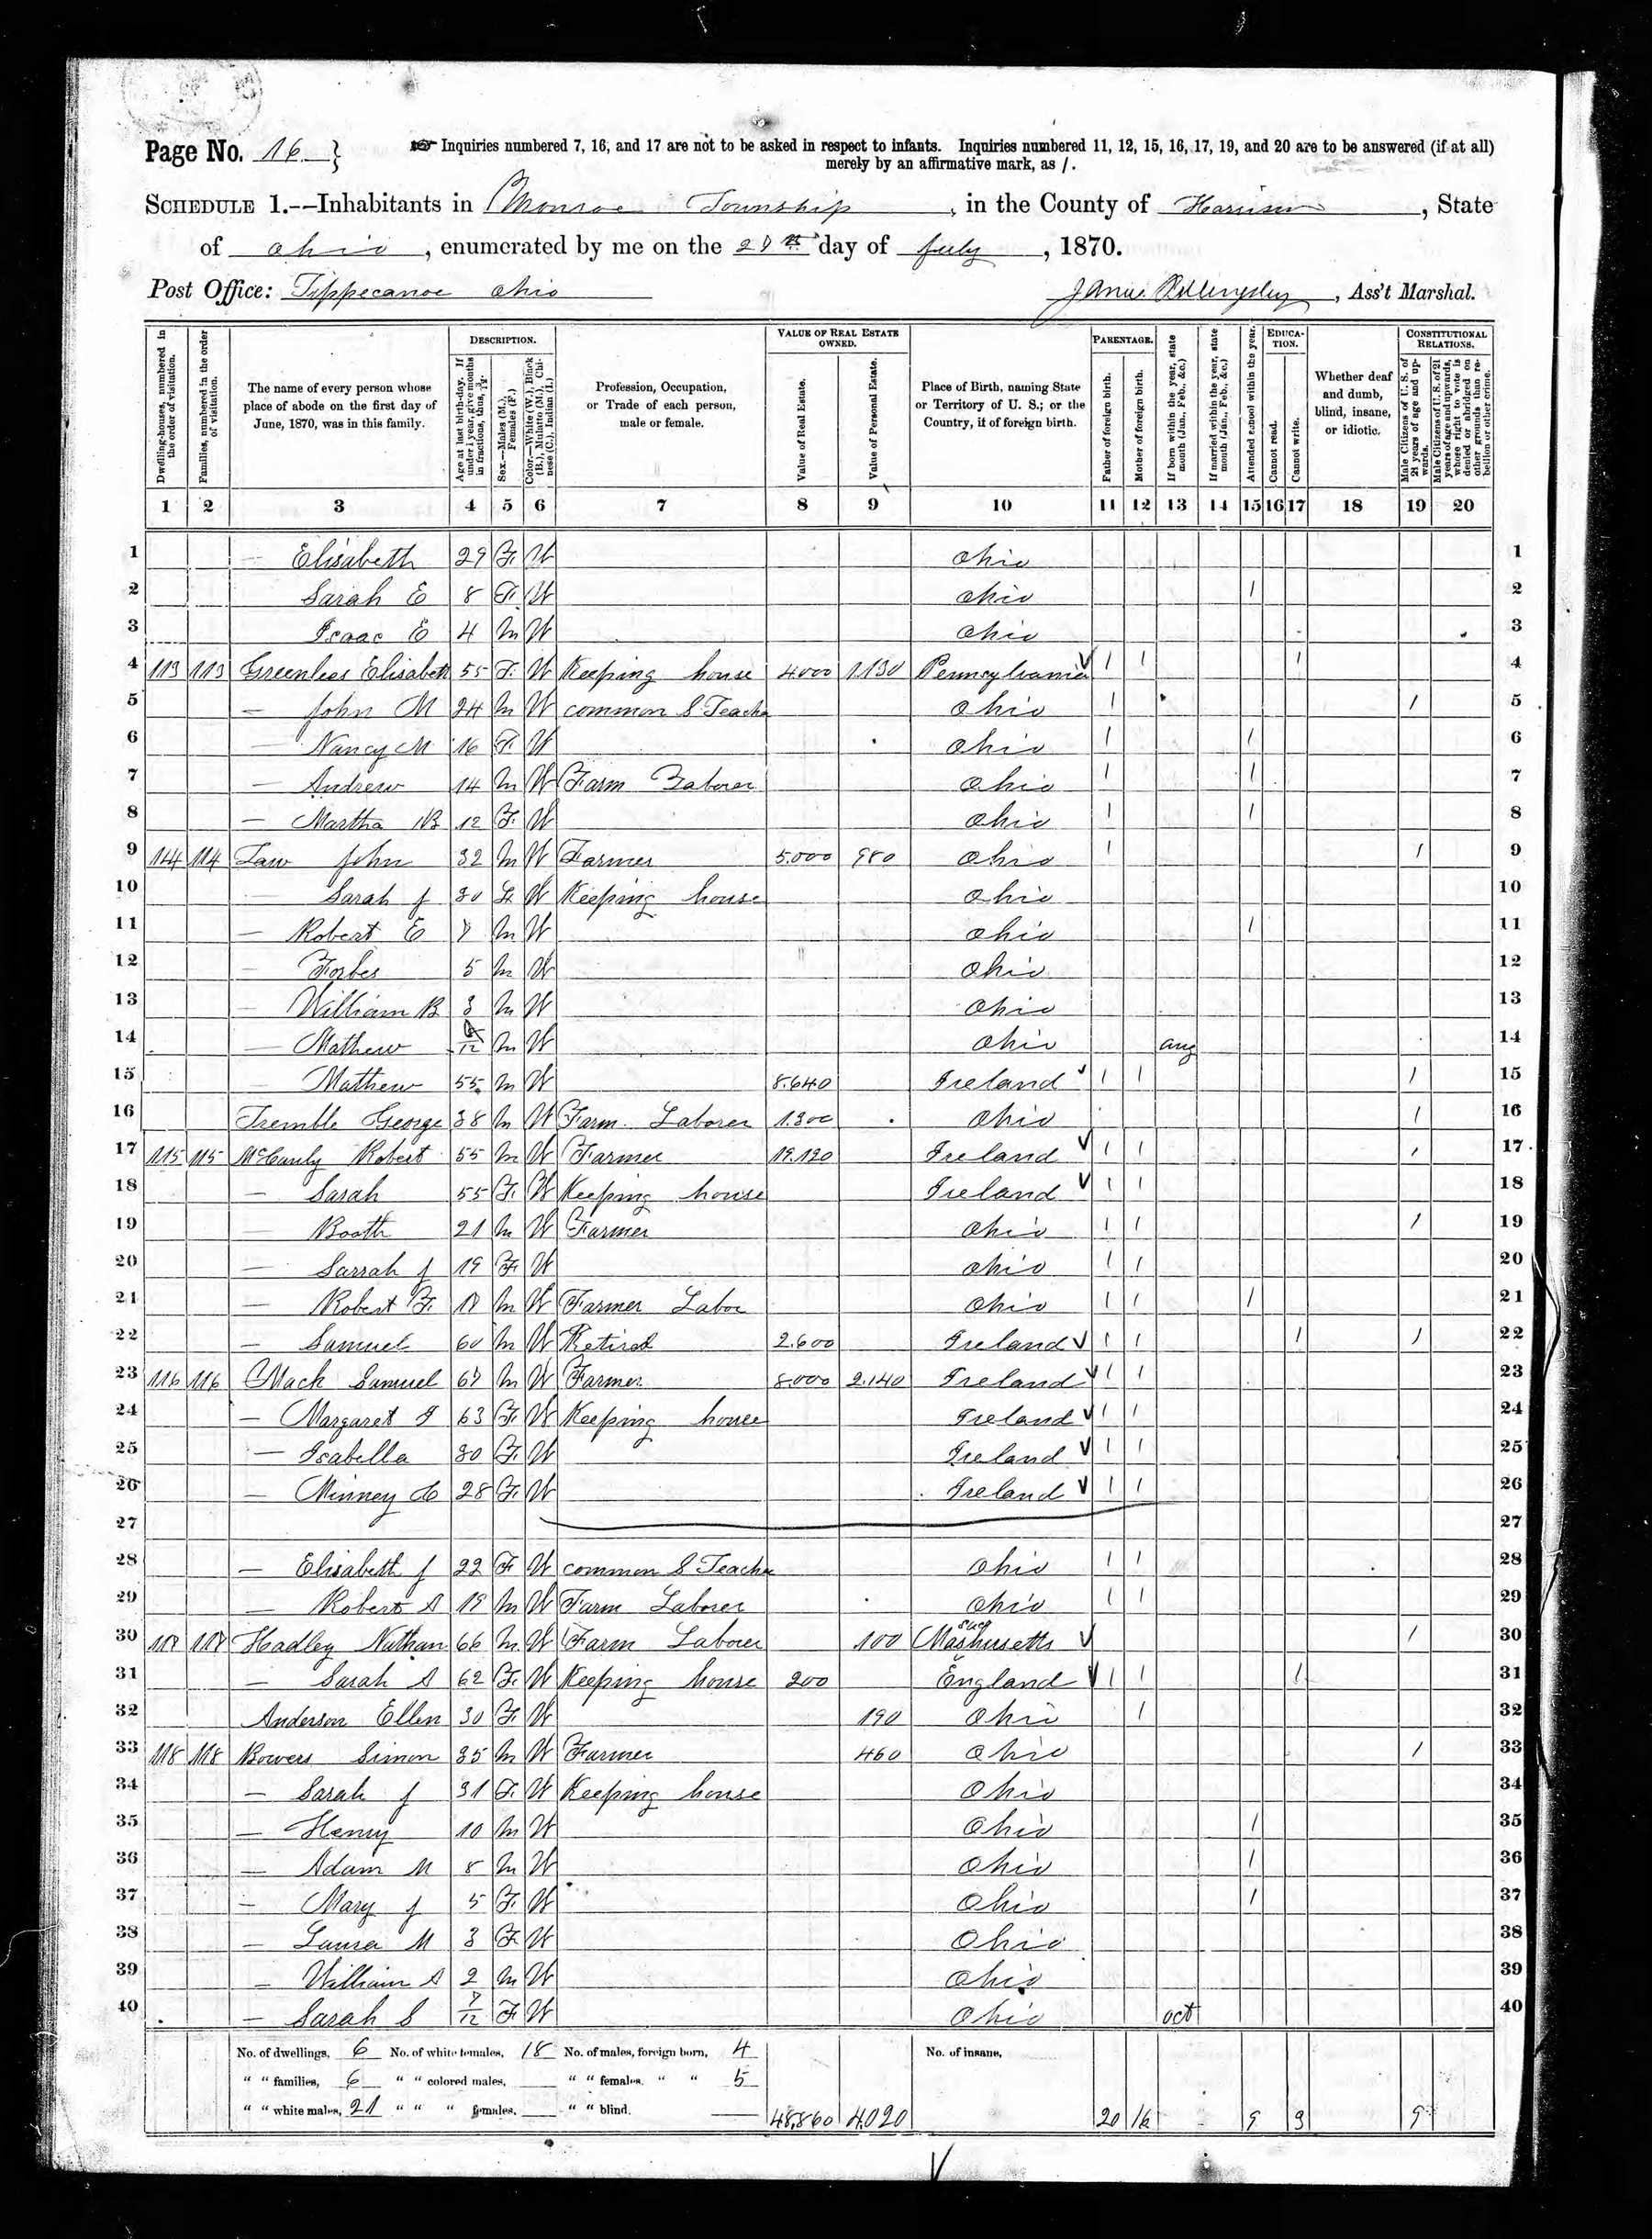 Page No. 16 } Inquiries numbered 7, 16, and 17 are not to be asked in respect to infants. Inquiries numbered 11, 12, 15, 16, 17, 19, and 20 are to be answered (if at all)
merely by an affirmative mark, as /.
SCHEDULE 1.--Inhabitants in Monroe Township, in the County of Harrison, State
of Ohio, enumerated by me on the day of July, 1870.
Post Office: Tippecanoe Ohio , Ass't Marshal.
Dwelling-houses, numbered in the order of visitation.
Families, numbered in the order of visitation.
The name of every person whose place of abode on the first day of June, 1870, was in this family.
DESCRIPTION.
Age at last birth-day. If under 1 year, give months in fractions, thus, 3/12.
Sex.—Males (M.), Females (F.)
Color.—White (W.), Black (B.), Mulatto (M.), Chinese (C.), Indian (I.)
Profession, Occupation, or Trade of each person, male or female.
VALUE OF REAL ESTATE OWNED.
Value of Real Estate.
Value of Personal Estate.
Place of Birth, naming State or Territory of U. S.; or the Country, if of foreign birth.
PARENTAGE.
Father of foreign birth.
Mother of foreign birth.
If born within the year, state month (Jan., Feb., &c.)
If married within the year, state month (Jan., Feb., &c.)
Attended school within the year.
EDUCATION.
Cannot read.
Cannot write.
Whether deaf and dumb, blind, insane, or idiotic.
CONSTITUTIONAL RELATIONS.
Male Citizens of U. S. of 21 years of age and upwards.
Male Citizens of U. S. of 21 years of age and upwards, whose right to vote is denied or abridged on other grounds than rebellion or other crime.
1 2 3 4 5 6 7 8 9 10 11 12 13 14 15 16 17 18 19 20
1 — Elisabeth 29 F. W Ohio 1
2 Sarah E 8 F. W Ohio / 2
3 Isaac E 4 M W Ohio 3
4 113 113 Greenlees Elisabeth 55 F. W Keeping house 4000 1130 Pennsylvania √ / / / 4
5 — John M 24 M W common S. Teacher Ohio / / 5
6 — Nancy M 16 F. W Ohio / / 6
7 — Andrew 14 M W Farm Laborer Ohio / / 7
8 — Martha B 12 F. W Ohio / / 8
9 114 114 Law John 32 M W Farmer 5.000 980 Ohio / / 9
10 — Sarah J 30 F. W Keeping house Ohio 10
11 — Robert E 7 M W Ohio / 11
12 — Forbes 5 M W Ohio 12
13 — William B 3 M W Ohio 13
14 — Mathew /12 M W Ohio aug 14
15 — Mathew 55 M W 8.640 Ireland √ / / / 15
16 Tremble George 38 M W Farm Laborer 1.300 Ohio / 16
17 115 115 Robert 55 M W Farmer 19.120 Ireland √ / / / 17
18 — Sarah 55 F. W Keeping house Ireland √ / / 18
19 — Booth 21 M W Farmer Ohio / / / 19
20 — Sarrah J 19 F. W Ohio / / 20
21 — Robert F. 17 M W Farmer Labor Ohio / / / 21
22 — Samuel 60 M W Retired 2.600 Ireland √ / / / / 22
23 116 116 Mack Samuel 67 M W Farmer 8.000 2.140 Ireland √ / / 23
24 — Margaret J 63 F. W Keeping house Ireland √ / / 24
25 — Isabella 30 F. W Ireland √ / / 25
26 — Minney C 28 F. W Ireland √ / / 26
27 27
28 — Elisabeth J 22 F. W common S Teacher Ohio / / 28
29 — Robert A 19 M W Farm Laborer Ohio / / 29
30 117 117 Hadley Nathan 66 M W Farm Laborer 100 Massachusetts √ / 30
31 — Sarah A 62 F. W Keeping house 200 England √ / / / 31
32 Anderson Ellen 30 F. W 190 Ohio / 32
33 118 118 Bowers Simon 35 M W Farmer 460 Ohio / 33
34 — Sarah J 31 F. W Keeping house Ohio 34
35 — Henry 10 M W Ohio / 35
36 — Adam M 8 M W Ohio / 36
37 — Mary J 5 F. W Ohio / 37
38 — Laura M 3 F. W Ohio 38
39 — William A 2 M W Ohio 39
40 — Sarah S 7/12 F. W Ohio oct 40
No. of dwellings, 6 No. of white females, 18 No. of males, foreign born, 4 No. of insane,
" " families, 6 " " colored males, " " females, " " 5
" " white males, 21 " " " females, " " blind. 48,860 4.020 20 16 9 3 9